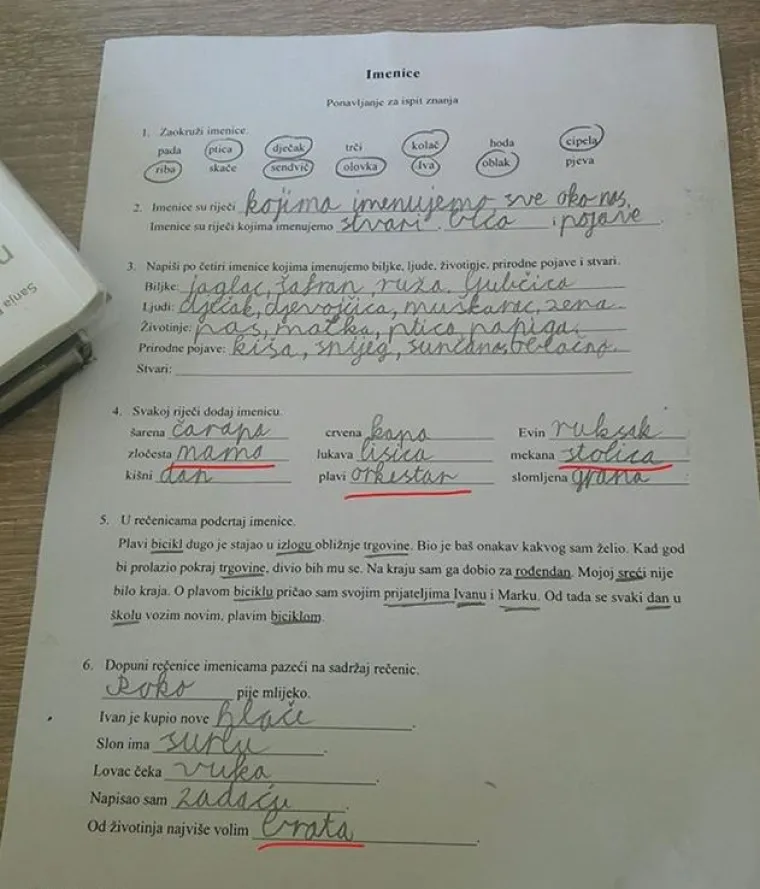 Imenice
Ponavljanje za ispit znanja
1. Zaokruži imenice.
pada ptica dječak trči kolač hoda cipela
riba skače sendvič olovka Iva oblak pjeva
2. Imenice su riječi kojima imenujemo sve oko nas.
Imenice su riječi kojima imenujemo stvari, bića i pojave.
3. Napiši po četiri imenice kojima imenujemo biljke, ljude, životinje, prirodne pojave i stvari.
Biljke: jaglac, šafran, ruža, ljubičica
Ljudi: dječak, djevojčica, muškarac, žena
Životinje: pas, mačka, ptica, papiga.
Prirodne pojave: kiša, snijeg, sunčano, oblačno.
Stvari:
4. Svakoj riječi dodaj imenicu.
šarena čarapa crvena kapa Evin ruksak
zločesta mama lukava lisica mekana stolica
kišni dan plavi orkestar slomljena grana
5. U rečenicama podcrtaj imenice.
Plavi bicikl dugo je stajao u izlogu obližnje trgovine. Bio je baš onakav kakvog sam želio. Kad god
bi prolazio pokraj trgovine, divio bih mu se. Na kraju sam ga dobio za rođendan. Mojoj sreći nije
bilo kraja. O plavom biciklu pričao sam svojim prijateljima Ivanu i Marku. Od tada se svaki dan u
školu vozim novim, plavim biciklom.
6. Dopuni rečenice imenicama pazeći na sadržaj rečenic.
Roko pije mlijeko.
Ivan je kupio nove hlače.
Slon ima surlu.
Lovac čeka vuka.
Napisao sam zadaću.
Od životinja najviše volim brata.
Sanja